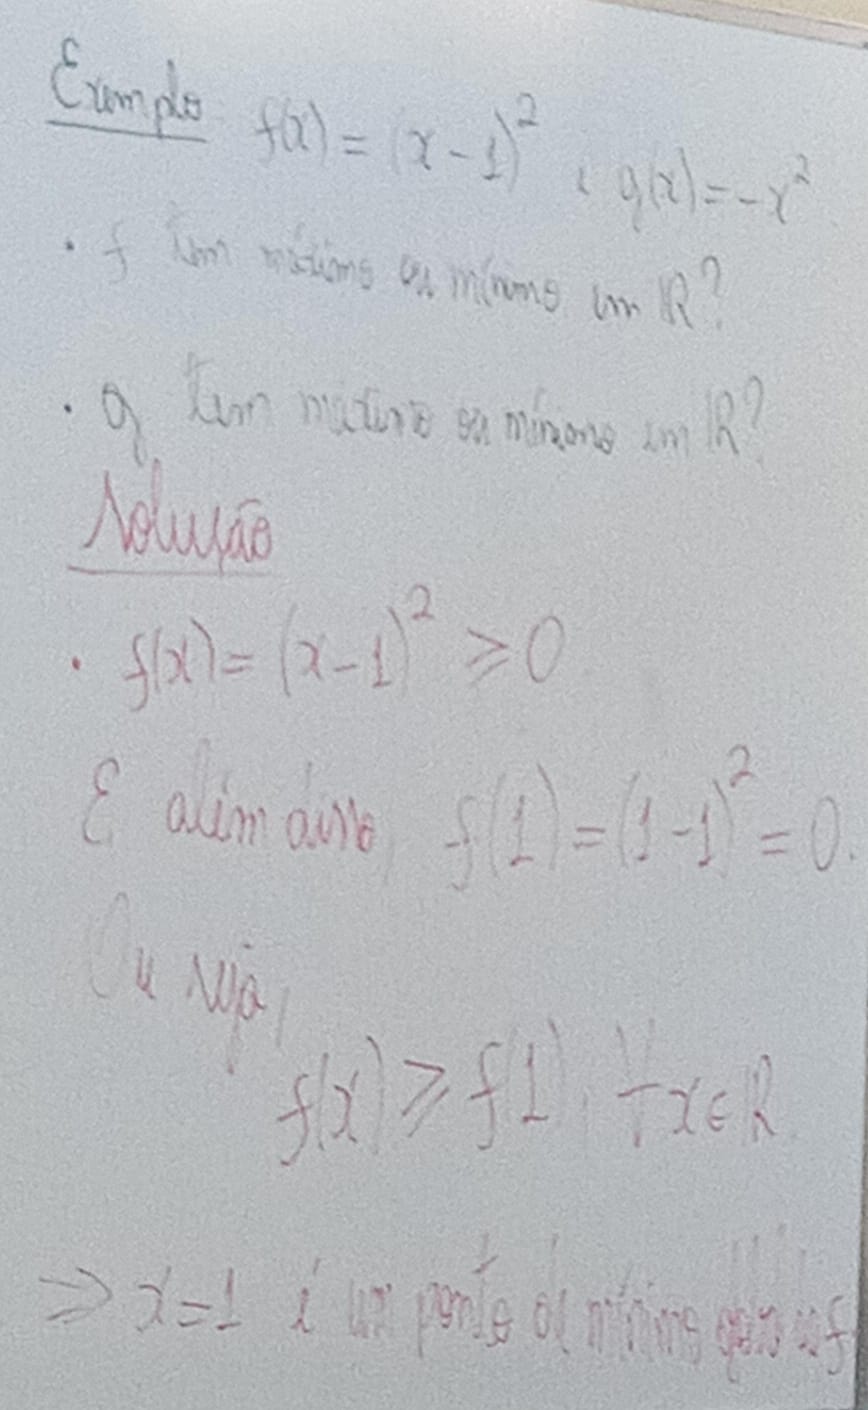 Exemplo f(x) = (x-1)² e g(x) = -x²
• f tem máximo ou mínimo em ℝ?
• g tem máximo ou mínimo em ℝ?
Solução
• f(x) = (x-1)² ≥ 0
E além disso, f(1) = (1-1)² = 0.
Ou seja,
f(x) ≥ f(1), ∀x∈ℝ
⇒ x=1 é um ponto de mínimo de f